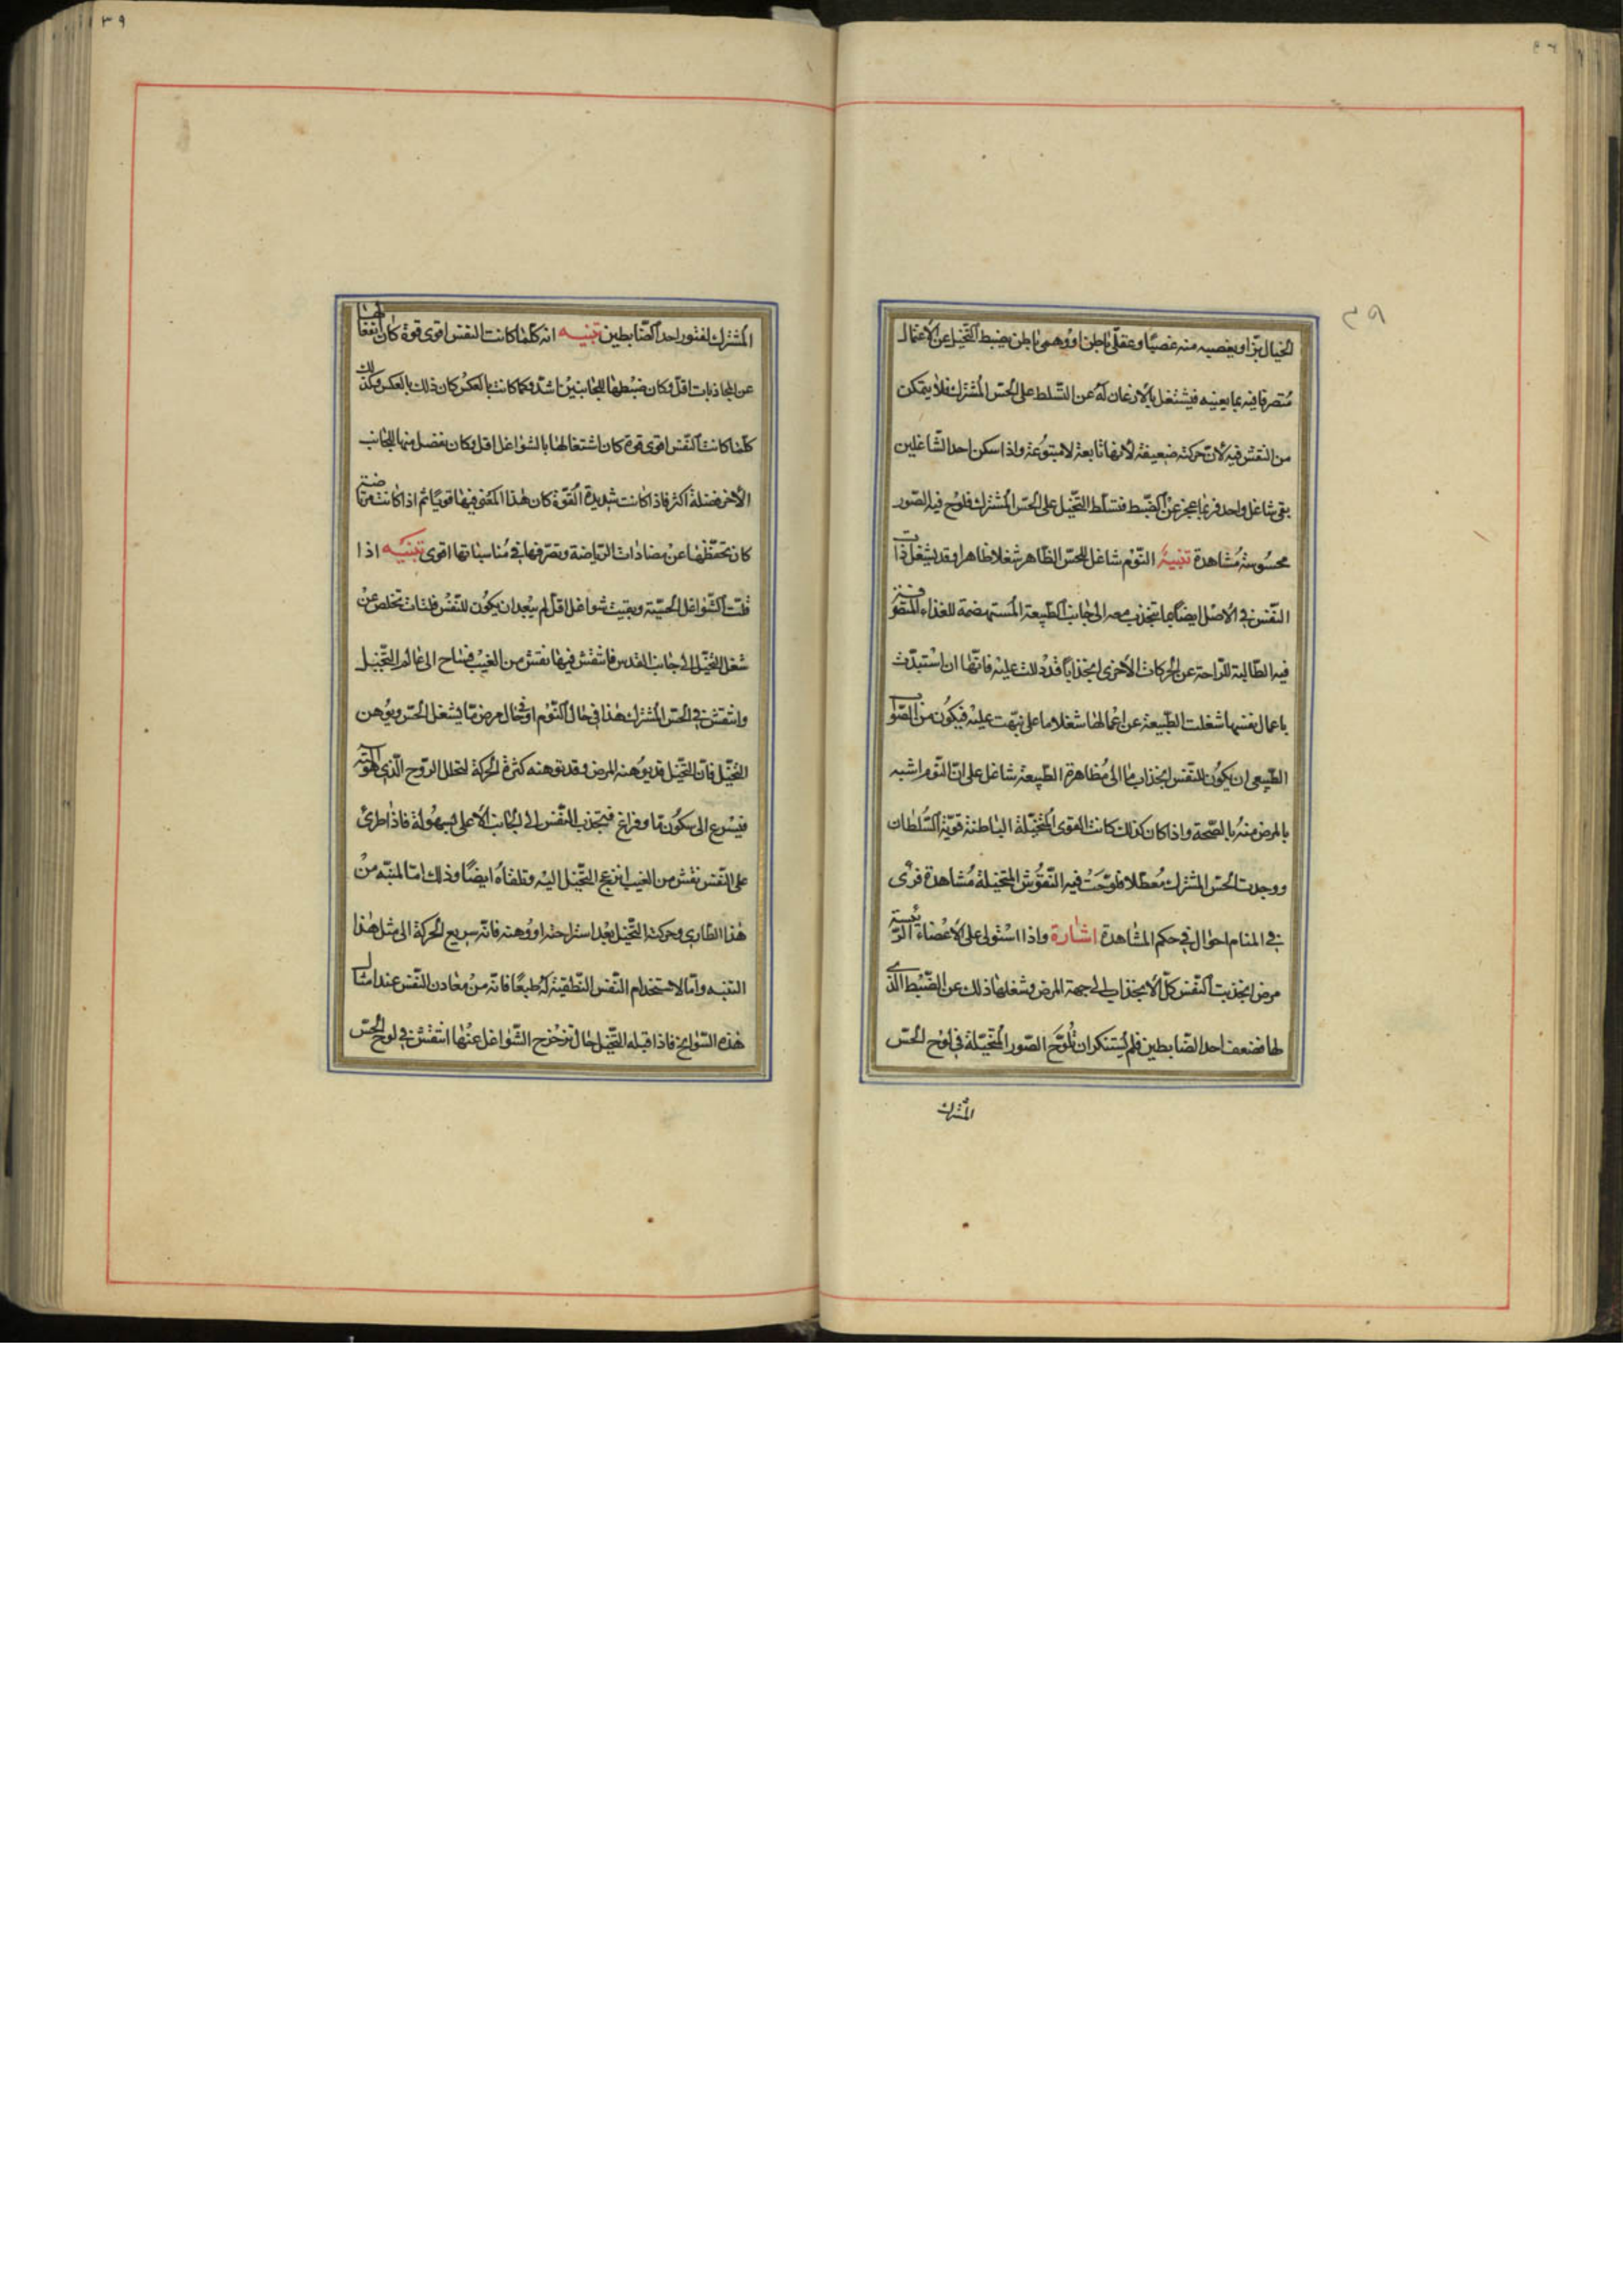 الخيال بزا و يغصبه منه غصبًا وعقلى باطن او وهمى باطن يضبط التخيل عن الاعتمال
مُتصرفا فيه بما يعنيه فيشتغل بالاذعان له عن التسلط على الحس المشترك فلا يتمكن
من النقش فيه لان حركته ضعيفة لانها تابعة لا متبوعة واذا سكن احد الشاغلين
بقى شاغل واحد فربما عجز عن الضبط فتسلط التخيل على الحس المشترك فلوح فيه الصور
محسوسة مُشاهدة تنبيه النوم شاغل للحس الظاهر شغلا ظاهرا وقد يشغل ذات
النفس فى الاصل ايضا بما ينجذب معه الى جانب الطبيعة المستهضمة للغذاء المتصرفة
فيه الطالبة للراحة عن الحركات الاخرى انجذابا قد دللت عليه فانها ان استبدت
باعمال نفسها شغلت الطبيعة عن اعمالها شغلا ما على نبهت عليه فيكون من الصواب
الطبيعى ان يكون للنفس انجذاب ما الى مُظاهرة الطبيعة شاغل على ان النوم اشبه
بالمرض منه بالصحة واذا كان كذلك كانت القوى المتخيلة الباطنة قوية السلطان
ووجدت الحس المشترك مُعطلا فلوحت فيه النقوش المتخيلة مُشاهدة فترى
فى المنام احوال فى حكم المشاهدة اشارة واذا استولى على الاعضاء الرئيسة
مرض انجذبت النفس كل الانجذاب الى جهة المرض وشغلها ذلك عن الضبط الذى
لها فضعف احد الضابطين فلم يُستنكر ان تُلوح الصور المتخيلة فى لوح الحس
المشترك
٣٩
المشترك لفتور احد الضابطين تنبيه انه كلما كانت النفس اقوى قوة كان انفعالها
عن المجاذبات اقل وكان ضبطها للجانبين اشد وكما كانت بالعكس كان ذلك بالعكس وكذلك
كلما كانت النفس اقوى قوة كان اشتغالها بالشواغل اقل وكان يفضل منها للجانب
الاخر فضلة اكثر فاذا كانت شديدة القوة كان هذا المعنى فيها قويا ثم اذا كانت مرتاضة
كان تحفظها عن مضادات الرياضة وتصرفها فى مُناسباتها اقوى تنبيه اذا
قلت الشواغل الحسية وبقيت شواغل اقل لم يبعد ان يكون للنفس فلتات تخلص عن
شغل التخيل الى جانب القدس فانتقش فيها نقش من الغيب فساح الى عالم التخيل
وانتقش فى الحس المشترك هذا فى حال النوم او فى حال مرض ما يشغل الحس ويوهن
التخيل فان التخيل قد يوهنه المرض وقد يوهنه كثرة الحركة لتحلل الروح الذى هو آلته
فيسرع الى سكون ما وفراغ فتنجذب النفس الى الجانب الاعلى بسهولة فاذا طرئ
على النفس نقش من الغيب انزعج التخيل اليه وتلقاه ايضًا وذلك اما لمنبه من
هذا الطارى وحركت التخيل بعد استراحته او وهنه فانه سريع الحركة الى مثل هذا
التنبه واما لاستخدام النفس النطقية له طبعًا فانه من معادن النفس عند امثال
هذه السوانح فاذا قبله التخيل حال تزحزح الشواغل عنها انتقش فى لوح الحس